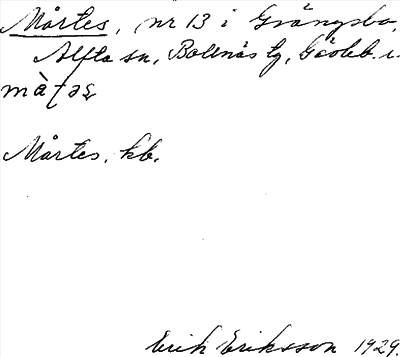 Mårtes, nr 13 i Grängsbo,
Alfta sn, Bollnäs tg, Gävleb. l.
Mårtes, kb.
Erik Eriksson 1929.